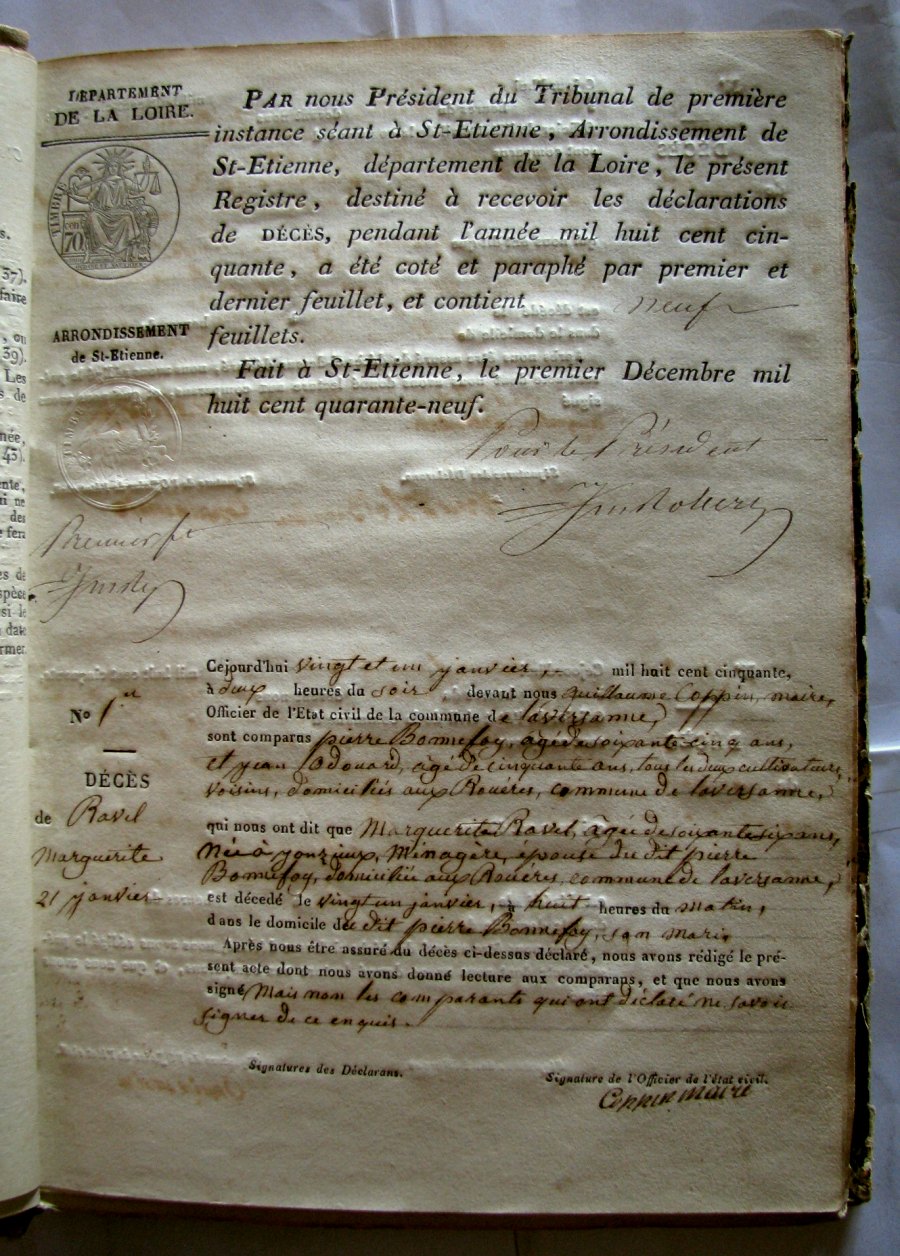 DÉPARTEMENT
DE LA LOIRE.
TIMBRE
70
PAR nous Président du Tribunal de première
instance séant à St-Etienne, Arrondissement de
St-Etienne, département de la Loire, le présent
Registre, destiné à recevoir les déclarations
de DÉCÈS, pendant l'année mil huit cent cin-
quante, a été coté et paraphé par premier et
dernier feuillet, et contient neuf
feuillets.
Fait à St-Etienne, le premier Décembre mil
huit cent quarante-neuf.
ARRONDISSEMENT
de St-Etienne.
Pour le Président
Premier
s.
37).
faire
, ou
39).
Les
s de
née,
43).
ente,
ui ne
des
e fera
es de
spèce
si le
a date
rmer.
Cejourd'hui vingt et un janvier, mil huit cent cinquante,
à deux heures du soir, devant nous Guillaume Coppin, maire,
Officier de l'Etat civil de la commune de laversanne,
sont comparus pierre Bonnefoy, âgé de soixante cinq ans,
et jean Odouard, âgé de cinquante ans, tous les deux cultivateurs,
voisins, domiciliés aux Rouéres, commune de laversanne,
qui nous ont dit que Marguerite Ravel, âgée de soixante six ans,
Née à jonzieux, Ménagère, épouse du dit pierre
Bonnefoy, domiciliée aux Rouéres, commune de laversanne,
est décedé le vingt un janvier, à huit heures du Matin,
dans le domicile du dit pierre Bonnefoy, son mari,
Après nous être assuré du décès ci-dessus déclaré, nous avons rédigé le pré-
sent acte dont nous avons donné lecture aux comparans, et que nous avons
signé, Mais non les comparants qui ont déclaré ne savoir
signer de ce enquis.
No 1er
DÉCÈS
de Ravel
Marguerite
21 janvier
Signatures des Déclarans.
Signature de l'Officier de l'état civil.
Coppin maire